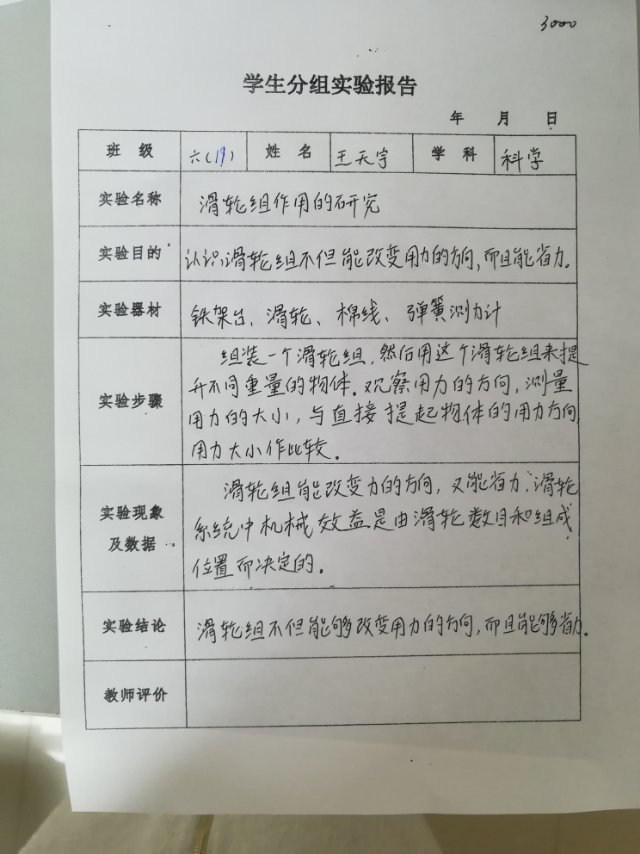 3000
学生分组实验报告
年 月 日
班 级 六(19) 姓 名 王天宇 学 科 科学
实验名称 滑轮组作用的研究
实验目的 认识滑轮组不但能改变用力的方向,而且能省力。
实验器材 铁架台、滑轮、棉线、弹簧测力计
组装一个滑轮组,然后用这个滑轮组来提
升不同重量的物体。观察用力的方向,测量
实验步骤 用力的大小,与直接提起物体的用力方向
用力大小作比较。
滑轮组能改变力的方向,又能省力,滑轮
实验现象 系统中机械效益是由滑轮数目和组成
及数据 位置而决定的。
实验结论 滑轮组不但能够改变用力的方向,而且能够省力。
教师评价